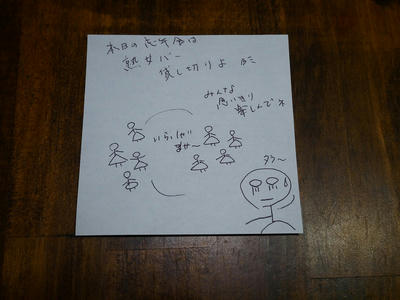 本日の忘年会は
熟女バー
貸し切りよ
みんな
思いっきり
楽しんでネ
いらっしゃい
ませ〜